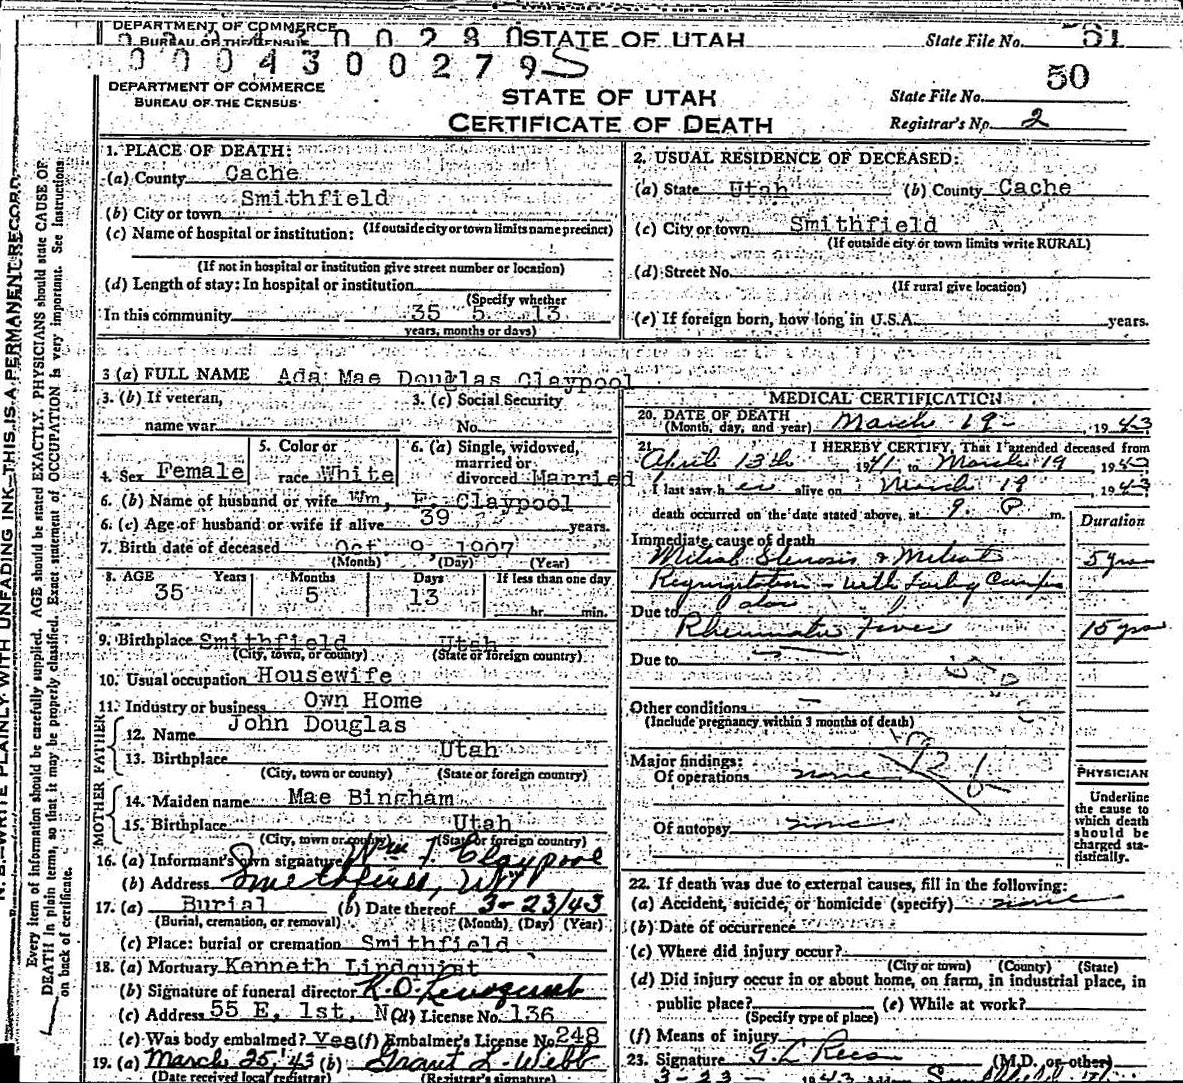 DEPARTMENT OF COMMERCE
BUREAU OF THE CENSUS
STATE OF UTAH
State File No. 51
0 0 0 4 3 0 0 2 7 9 S
50
DEPARTMENT OF COMMERCE
BUREAU OF THE CENSUS
STATE OF UTAH
State File No.
CERTIFICATE OF DEATH
Registrar's No. 2
1. PLACE OF DEATH:
(a) County Cache
(b) City or town Smithfield
(If outside city or town limits name precinct)
(c) Name of hospital or institution:
(If not in hospital or institution give street number or location)
(d) Length of stay: In hospital or institution
(Specify whether
In this community 35 5 13
years, months or days)
2. USUAL RESIDENCE OF DECEASED:
(a) State Utah (b) County Cache
(c) City or town Smithfield
(If outside city or town limits write RURAL)
(d) Street No.
(If rural give location)
(e) If foreign born, how long in U.S.A. years.
3 (a) FULL NAME Ada Mae Douglas Claypool
3. (b) If veteran, name war
3. (c) Social Security No.
4. Sex Female
5. Color or race White
6. (a) Single, widowed, married or divorced Married
6. (b) Name of husband or wife Wm. F. Claypool
6. (c) Age of husband or wife if alive 39 years.
7. Birth date of deceased Oct. 9, 1907
(Month) (Day) (Year)
8. AGE Years Months Days If less than one day
35 5 13 hr. min.
9. Birthplace Smithfield Utah
(City, town, or county) (State or foreign country)
10. Usual occupation Housewife
11. Industry or business Own Home
FATHER
12. Name John Douglas
13. Birthplace Utah
(City, town or county) (State or foreign country)
MOTHER
14. Maiden name Mae Bingham
15. Birthplace Utah
(City, town or county) (State or foreign country)
16. (a) Informant's own signature Wm F Claypool
(b) Address Smithfield, Utah
17. (a) Burial (b) Date thereof 3-23/43
(Burial, cremation, or removal) (Month) (Day) (Year)
(c) Place: burial or cremation Smithfield
18. (a) Mortuary Kenneth Lindquist
(b) Signature of funeral director K. O. Lindquist
(c) Address 55 E, 1st, N (d) License No. 136
(e) Was body embalmed? Yes (f) Embalmer's License No. 248
19. (a) March 25, '43 (b) Grant L. Webb
(Date received local registrar) (Registrar's signature)
MEDICAL CERTIFICATION
20. DATE OF DEATH
(Month, day, and year) March 19 - , 1943
21. I HEREBY CERTIFY, That I attended deceased from
April 13th 1941, to March 19 1943
I last saw her alive on March 19, 1943
death occurred on the date stated above, at 9. P m.
Duration
Immediate cause of death
Mitral Stenosis & Mitral 5 years
Regurgitation - with failing Compensation
Due to Rheumatic Fever 15 years
Due to
Other conditions
(Include pregnancy within 3 months of death)
Major findings:
Of operations none
Of autopsy none
PHYSICIAN
Underline the cause to which death should be charged statistically.
22. If death was due to external causes, fill in the following:
(a) Accident, suicide, or homicide (specify) none
(b) Date of occurrence
(c) Where did injury occur?
(City or town) (County) (State)
(d) Did injury occur in or about home, on farm, in industrial place, in public place? (e) While at work?
(Specify type of place)
(f) Means of injury
23. Signature G. L. Rees (M.D. or other)
3-23- 1943
N. B.—WRITE PLAINLY WITH UNFADING INK—THIS IS A PERMANENT RECORD
Every item of information should be carefully supplied. AGE should be stated EXACTLY. PHYSICIANS should state CAUSE OF
DEATH in plain terms, so that it may be properly classified. Exact statement of OCCUPATION is very important. See instructions
on back of certificate.